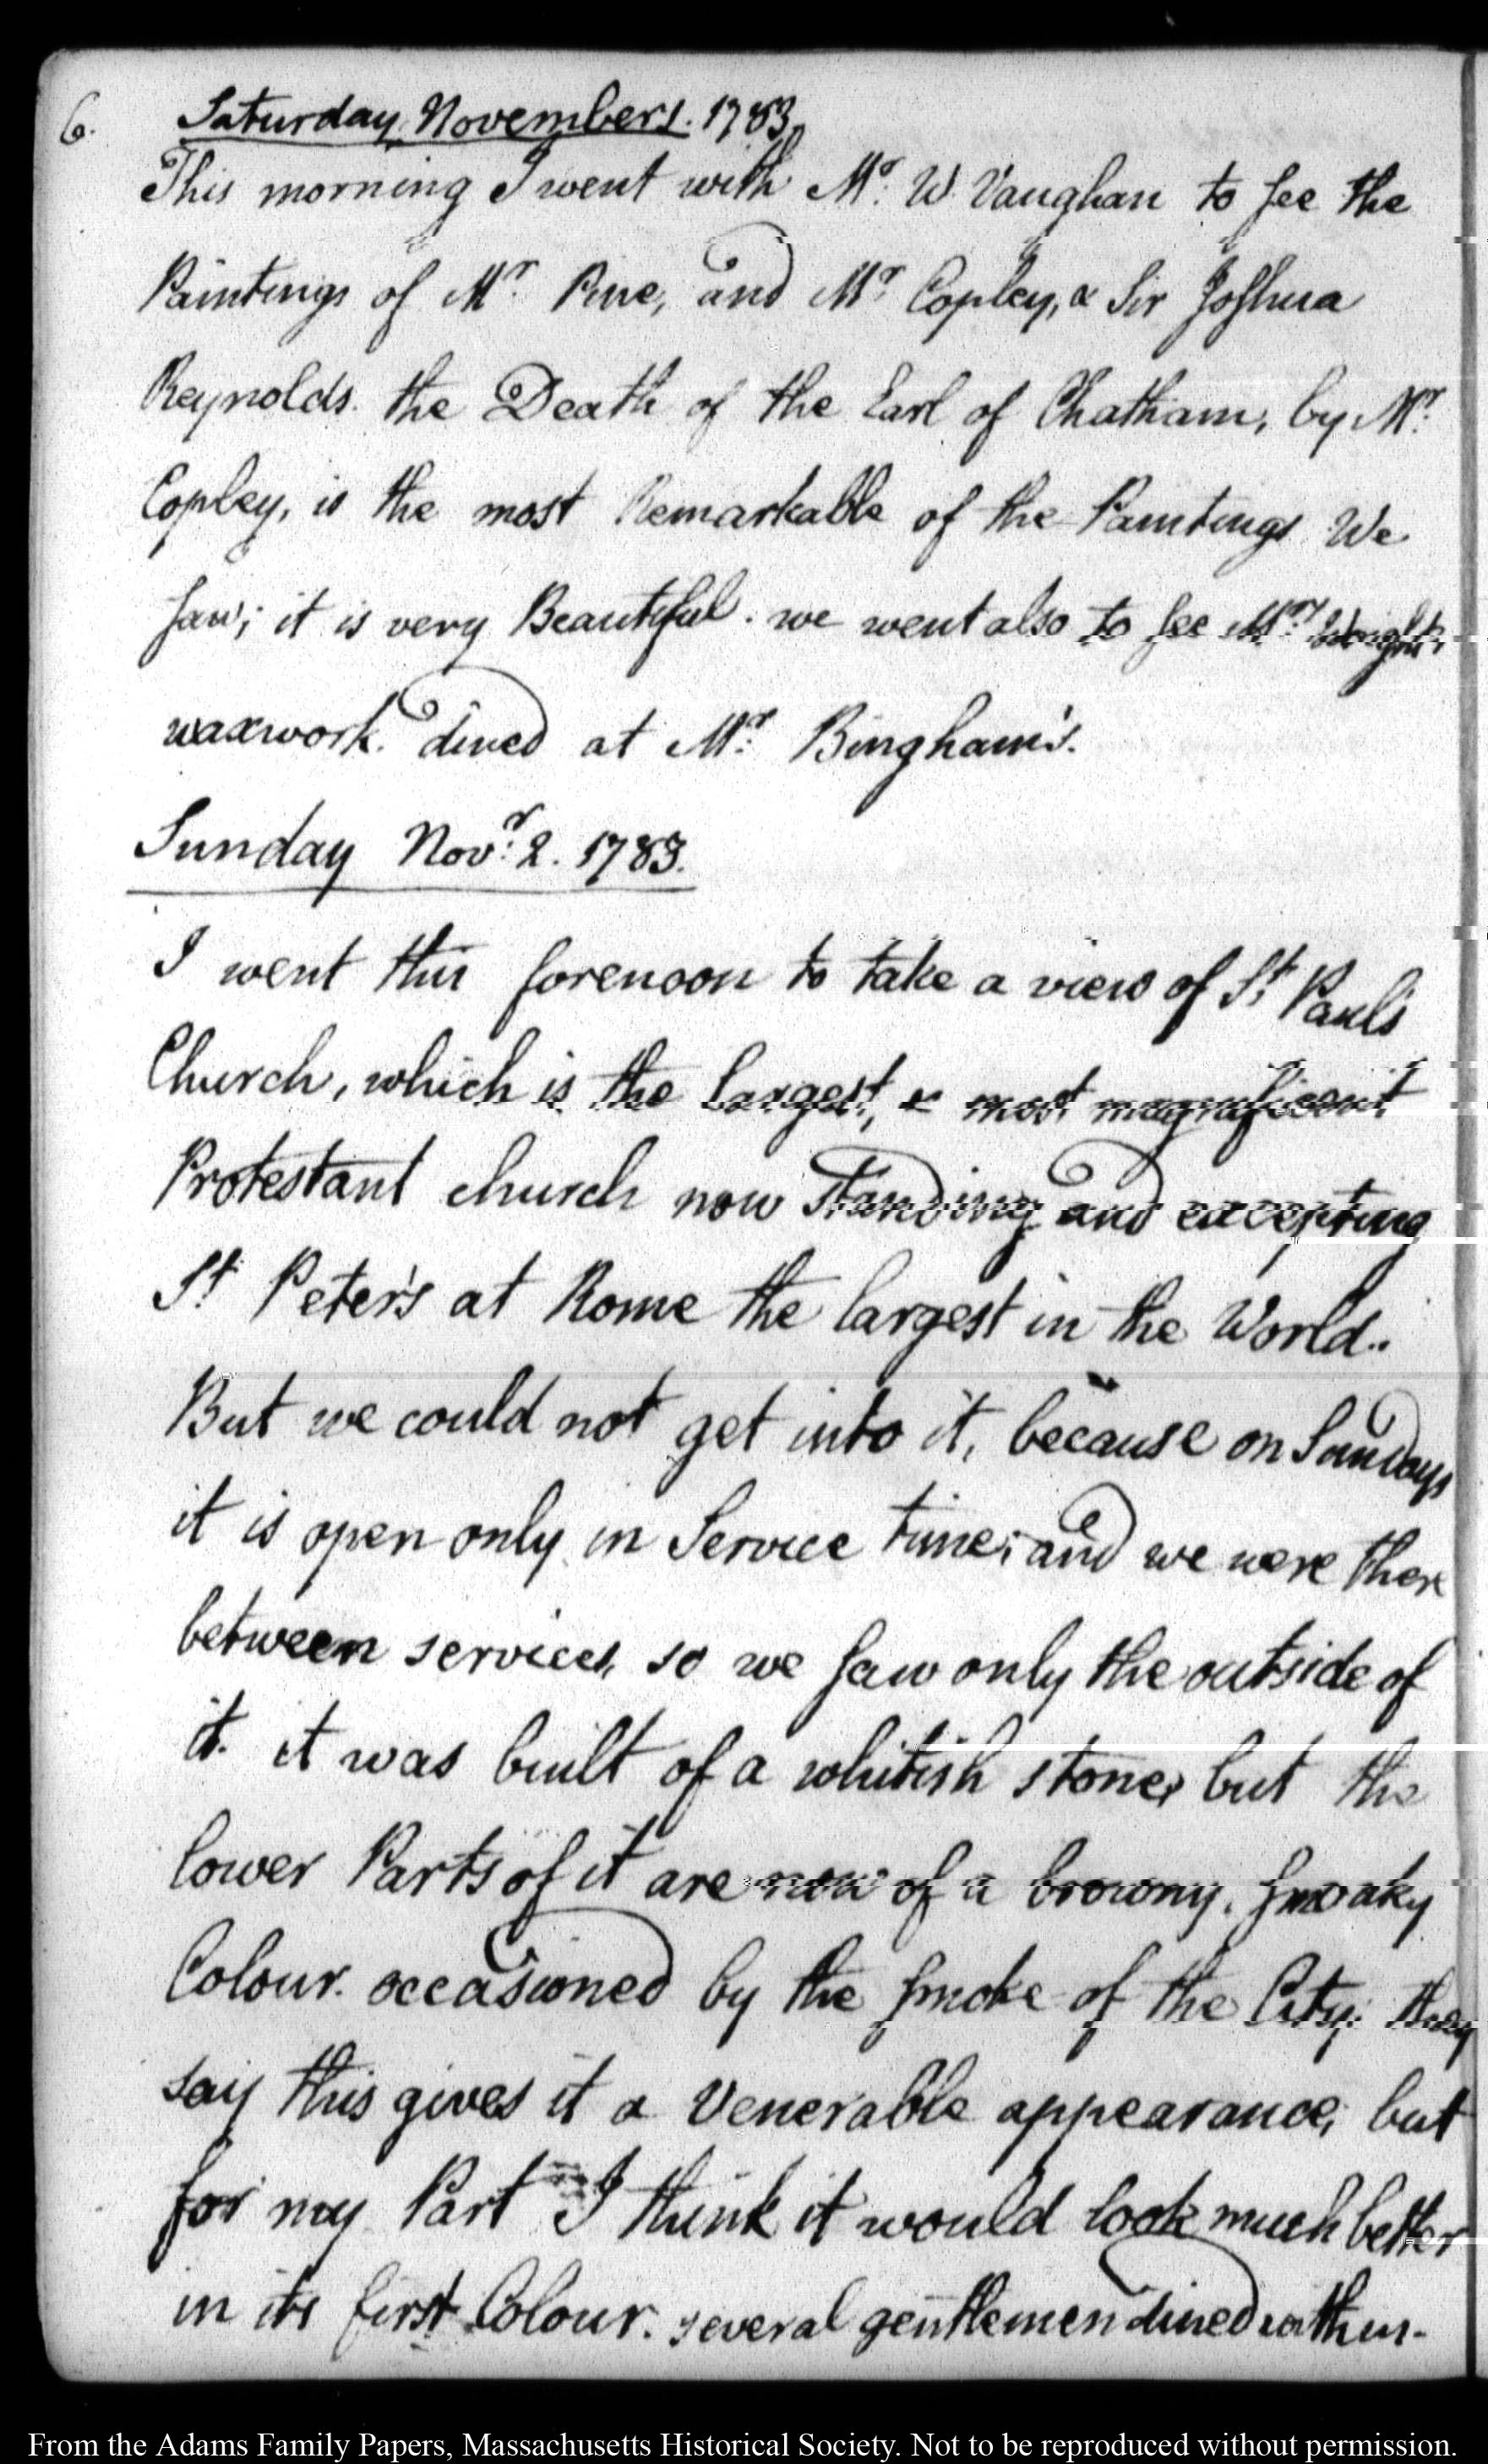 6.
Saturday November 1. 1783.
This morning I went with Mr. W. Vaughan to see the
Paintings of Mr. Pine, and Mr. Copley, & Sir Joshua
Reynolds. the Death of the Earl of Chatham, by Mr.
Copley, is the most Remarkable of the Paintings We
saw; it is very Beautiful. we went also to see Mrs. Wright's
waxwork. dined at Mr. Bingham's.
Sunday Novr. 2. 1783.
I went this forenoon to take a view of St. Paul's
Church, which is the largest, & most magnificent
Protestant church now standing and excepting
St. Peter's at Rome the largest in the World..
But we could not get into it, because on Sundays
it is open only in Service time; and we were there
between services, so we saw only the outside of
it. it was built of a whitish stone, but the
lower Parts of it are now of a browny, smoaky
Colour. occasioned by the smoke of the City; they
say this gives it a Venerable appearance, but
for my Part I think it would look much better
in its first Colour. several gentlemen dined with us.
From the Adams Family Papers, Massachusetts Historical Society. Not to be reproduced without permission.